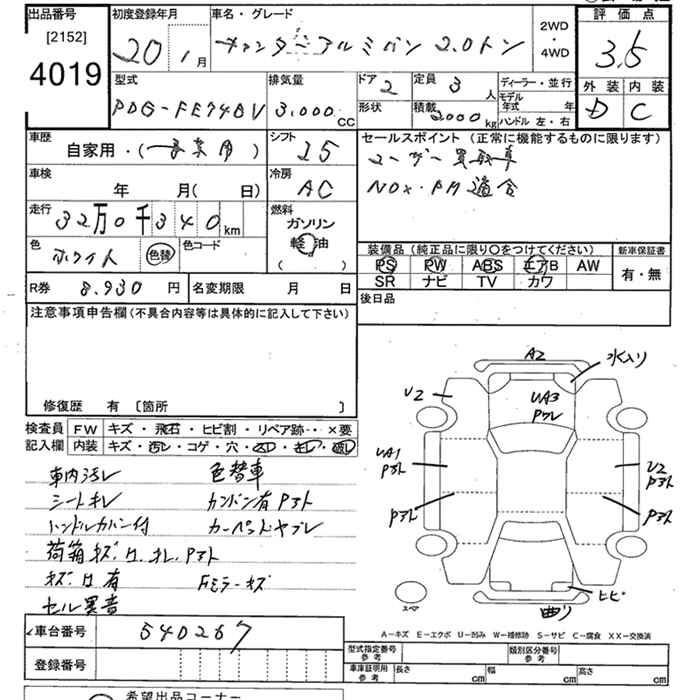 出品番号 初度登録年月 車名・グレード 2WD ・ 4WD 評価点
[2152]
4019
20年 1月 キャンターアルミバン 2.0トン 3.5
型式 排気量 ドア 定員 ディーラー・並行 外装 内装
PDG-FE74BV 3,000cc 2 3人 モデル年式 年 D C
形状 積載 2000kg ハンドル 左・右
車歴 シフト セールスポイント (正常に機能するものに限ります)
自家用・( ) 25 ユーザー買取車
車検 冷房
年 月( 日) AC NOx・PM適合
走行 32万0千340km 燃料
ガソリン
軽油
( )
色 ホワイト 色替 色コード
装備品 (純正品に限り○をつけてください) 新車保証書
PS PW ABS エアB AW 有・無
SR ナビ TV カワ
R券 8,930円 名変期限 月 日 後日品
注意事項申告欄(不具合内容等は具体的に記入して下さい)
修復歴 有 〔箇所 〕
検査員 FW キズ・飛石・ヒビ割・リペア跡・・×要
記入欄 内装 キズ・汚レ・コゲ・穴・
車内汚レ 色替車
シートキレ カンバン有アト
ハンドルカバー付 カーペットヤブレ
荷箱キズ.凹.オレ.Pアト
キズ.凹有 Fミラーキズ
セル異音
A2 水入り
U2 UA3
UA1 Pアト U2 Pアト
Pアト Pアト
スペア 曲り ヒビ
A−キズ E−エクボ U−凹み W−補修跡 S−サビ C−腐食 XX−交換済
車台番号 540267
型式指定番号 参考 類別区分番号 参考
登録番号
車庫証明用 参考 長さ cm 幅 cm 高さ cm
希望出品コーナー